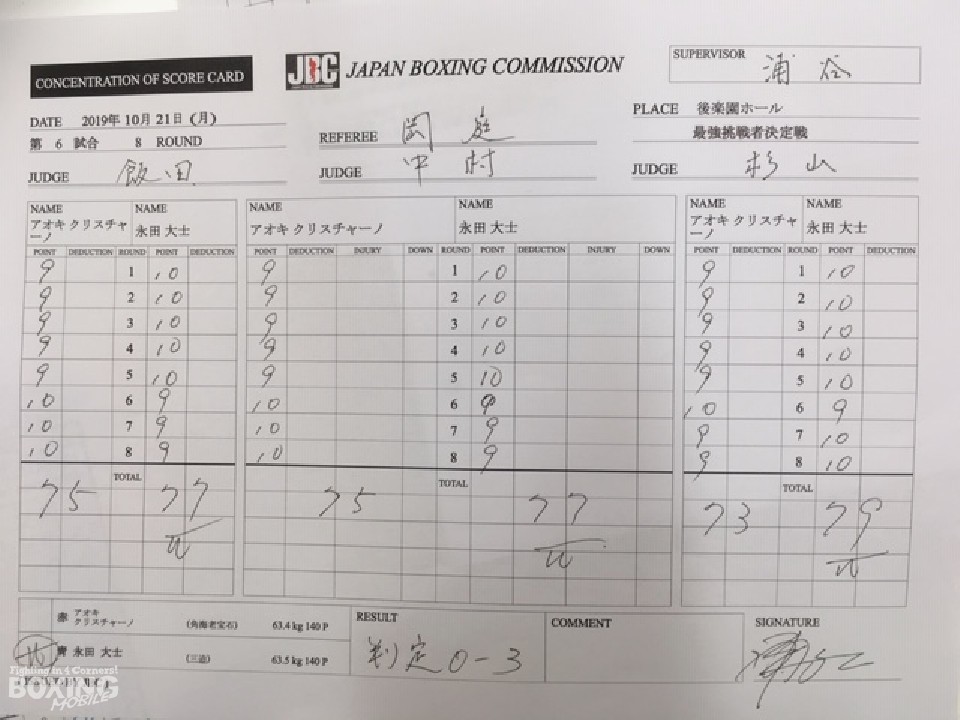 CONCENTRATION OF SCORE CARD
JBC JAPAN BOXING COMMISSION
SUPERVISOR 浦谷
DATE 2019年10月21日（月）
PLACE 後楽園ホール
第 6 試合 8 ROUND
REFEREE 岡庭
最強挑戦者決定戦
JUDGE 飯田
JUDGE 中村
JUDGE 杉山
NAME NAME NAME NAME NAME NAME
アオキ クリスチャーノ 永田 大士 アオキ クリスチャーノ 永田 大士 アオキ クリスチャーノ 永田 大士
POINT DEDUCTION ROUND POINT DEDUCTION POINT DEDUCTION INJURY DOWN ROUND POINT DEDUCTION INJURY DOWN POINT DEDUCTION ROUND POINT DEDUCTION
9 1 10 9 1 10 9 1 10
9 2 10 9 2 10 9 2 10
9 3 10 9 3 10 9 3 10
9 4 10 9 4 10 9 4 10
9 5 10 9 5 10 9 5 10
10 6 9 10 6 9 10 6 9
10 7 9 10 7 9 9 7 10
10 8 9 10 8 9 9 8 10
TOTAL TOTAL TOTAL
75 77 75 77 73 79
W W W
赤 アオキ クリスチャーノ （角海老宝石） 63.4 kg 140 P
青 永田 大士 （三迫） 63.5 kg 140 P
RESULT
判定 0-3
COMMENT
SIGNATURE
Fighting in 4 Corners!
BOXING
MOBILE